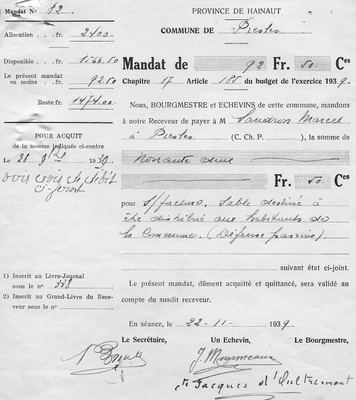 Mandat No 12
PROVINCE DE HAINAUT
Allocation . . fr. 2400
COMMUNE DE Presles
Disponible . . fr. 1566.50
Mandat de 92 Fr. 50 Ces
Le présent mandat
en moins . fr. 92.50
Chapitre 17 Article 185 du budget de l'exercice 1939.
Reste fr. 1474.00
Nous, BOURGMESTRE et ECHEVINS de cette commune, mandons
à notre Receveur de payer à M Vandron Marcel
à Presles (C. Ch. P. ), la somme de
POUR ACQUIT
de la somme indiquée ci-contre
Le 28 9bre 1939
Nonante deux
voir avis de débit
ci-joint
Fr. 50 Ces
pour s/facture, sable destiné à
être distribué aux habitants de
la Commune (Défense passive).
suivant état ci-joint.
1) Inscrit au Livre-Journal
sous le no 778
2) Inscrit au Grand-Livre du Rece-
veur sous le no
Le présent mandat, dûment acquitté et quittancé, sera valable au
compte du susdit receveur.
En séance, le 22-11- 1939
Le Secrétaire, Un Echevin, Le Bourgmestre,
cte Jacques d'Oultremont